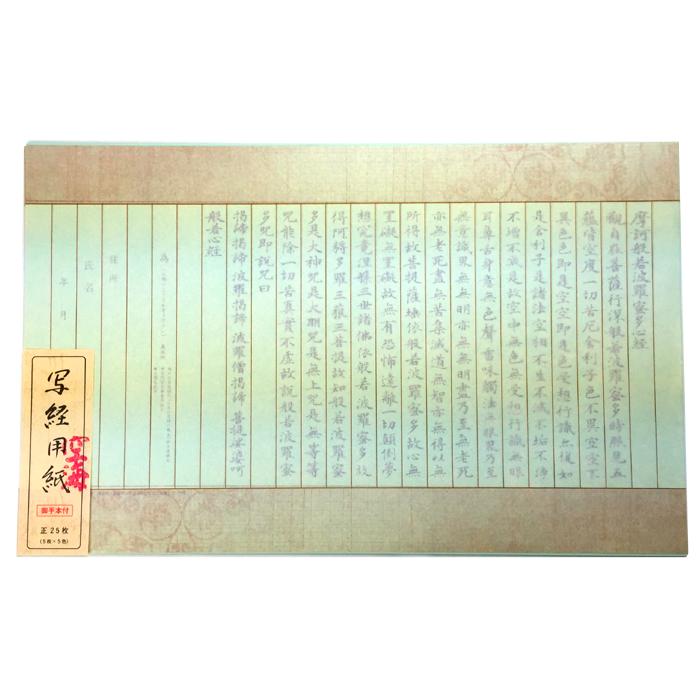 摩訶般若波羅蜜多心経
觀自在菩薩行深般若波羅蜜多時照見五
蘊皆空度一切苦厄舎利子色不異空空不
異色色即是空空即是色受想行識亦復如
是舎利子是諸法空相不生不滅不垢不浄
不増不減是故空中無色無受想行識無眼
耳鼻舌身意無色聲香味觸法無眼界乃至
無意識界無無明亦無無明盡乃至無老死
亦無老死盡無苦集滅道無智亦無得以無
所得故菩提薩埵依般若波羅蜜多故心無
罣礙無罣礙故無有恐怖遠離一切顛倒夢
想究竟涅槃三世諸佛依般若波羅蜜多故
得阿耨多羅三藐三菩提故知般若波羅蜜
多是大神咒是大明咒是無上咒是無等等
咒能除一切苦真實不虚故説般若波羅蜜
多咒即説咒曰
掲諦掲諦 波羅掲諦 波羅僧掲諦 菩提娑婆訶
般若心経
為
住所
氏名
年 月
写経用紙
御手本付
正 25枚
(5枚×5色)